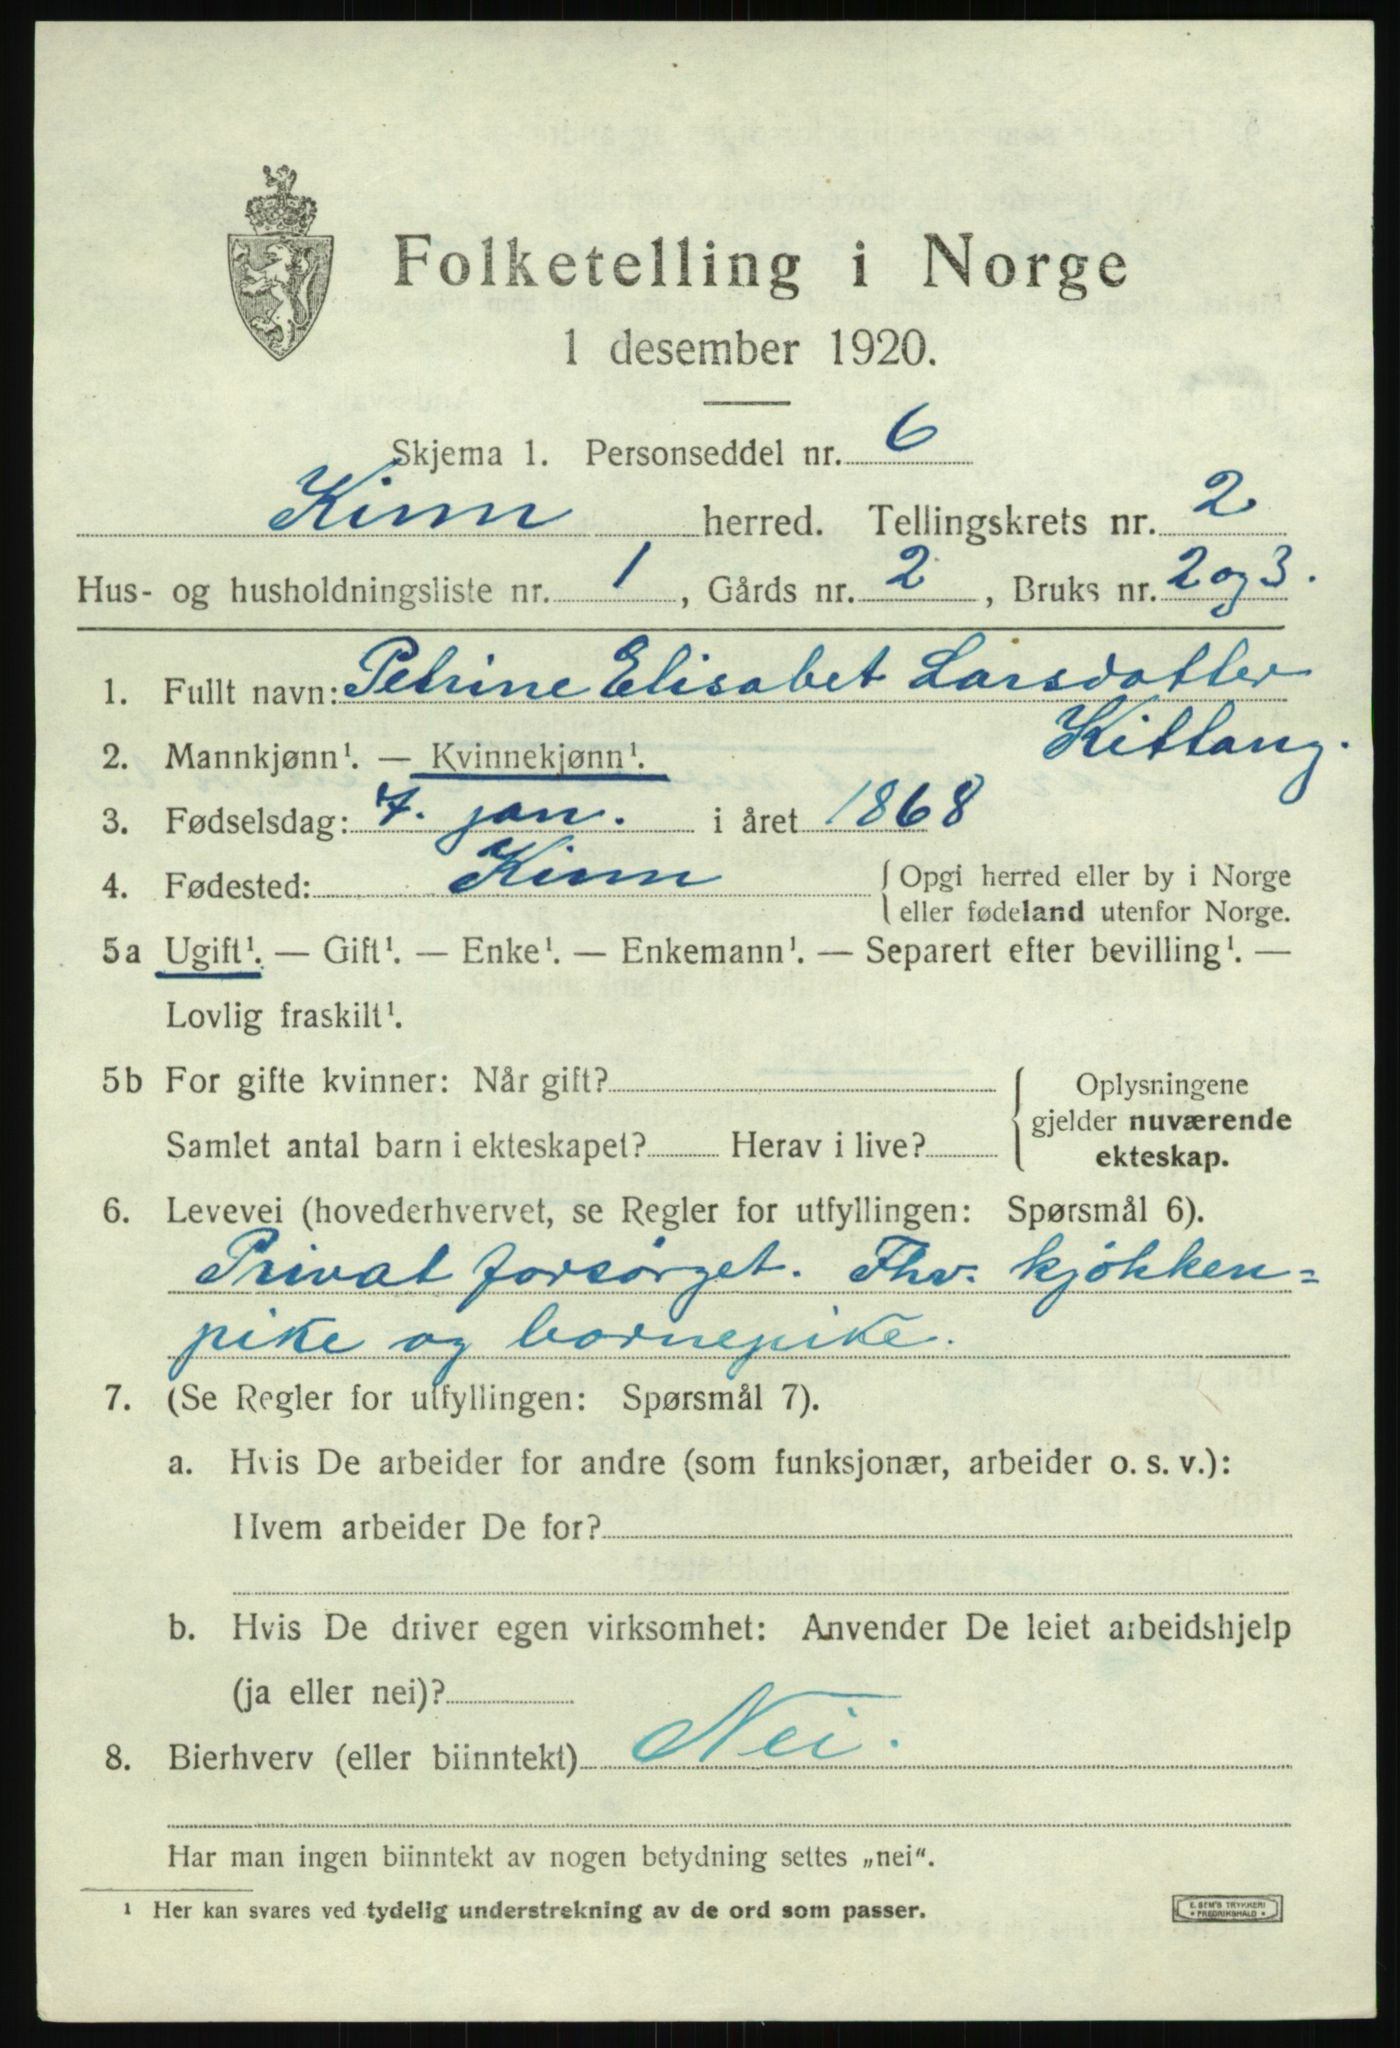 Folketelling i Norge
1 desember 1920.
Skjema 1. Personseddel nr. 6
Kinn herred. Tellingskrets nr. 2
Hus- og husholdningsliste nr. 1, Gårds nr. 2, Bruks nr. 2 og 3.
1. Fullt navn: Petrine Elisabet Larsdatter
Kittang.
2. Mannkjønn¹. — Kvinnekjønn¹.
3. Fødselsdag: 7. jan. i året 1868
4. Fødested: Kinn { Opgi herred eller by i Norge
eller fødeland utenfor Norge.
5a Ugift¹. — Gift¹. — Enke¹. — Enkemann¹. — Separert efter bevilling¹. —
Lovlig fraskilt¹.
5b For gifte kvinner: Når gift? Oplysningene
gjelder nuværende
Samlet antal barn i ekteskapet? Herav i live? ekteskap.
6. Levevei (hovederhvervet, se Regler for utfyllingen: Spørsmål 6).
Privat forsørget. Fhv. kjøkken=
pike og barnepike.
7. (Se Regler for utfyllingen: Spørsmål 7).
a. Hvis De arbeider for andre (som funksjonær, arbeider o. s. v.):
Hvem arbeider De for?
b. Hvis De driver egen virksomhet: Anvender De leiet arbeidshjelp
(ja eller nei)?
8. Bierhverv (eller biinntekt) Nei.
Har man ingen biinntekt av nogen betydning settes „nei“.
¹ Her kan svares ved tydelig understrekning av de ord som passer.
E. SEM'S TRYKKERI
* FREDRIKSHALD *